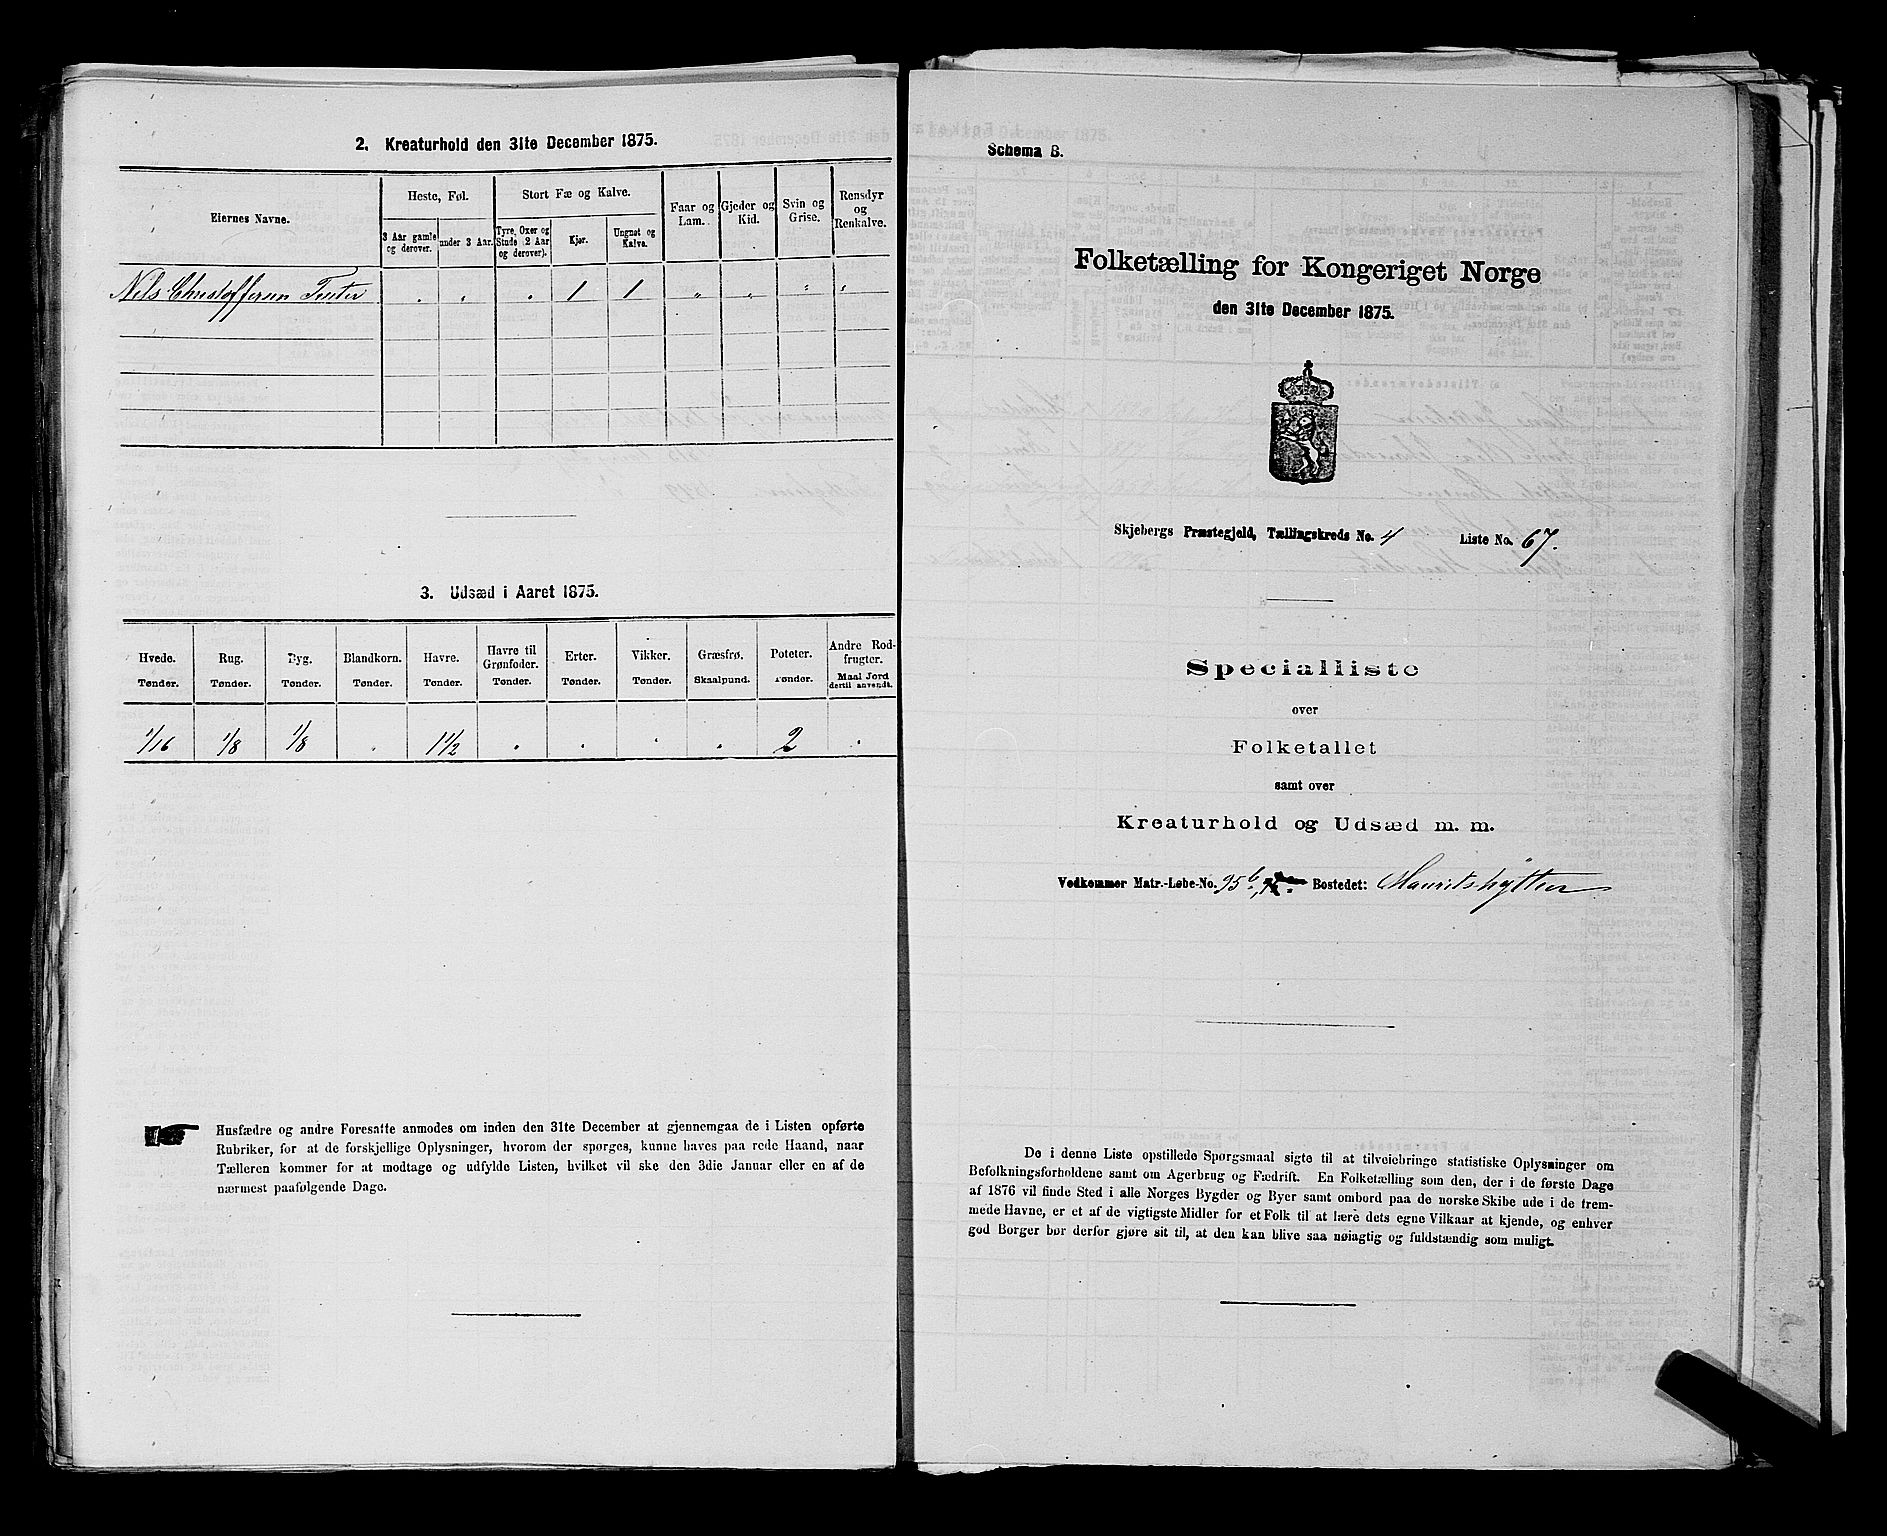 2. Kreaturhold den 31te December 1875.
Eiernes Navne.
Heste, Føl.
3 Aar gamle og derover.
under 3 Aar.
Stort Fæ og Kalve.
Tyre, Oxer og Stude 2 Aar og derover).
Kjør.
Ungnøt og Kalve.
Faar og Lam.
Gjeder og Kid.
Svin og Grise.
Rensdyr og Renkalve.
Nils Christoffersen . . . 1 1 " " " "
3. Udsæd i Aaret 1875.
Hvede. Rug. Byg. Blandkorn. Havre. Havre til Grønfoder. Erter. Vikker. Græsfrø. Poteter. Andre Rodfrugter.
Tønder. Tønder. Tønder. Tønder. Tønder. Tønder. Tønder. Tønder. Skaalpund. Tønder. Maal Jord dertil anvendt.
1/16 1/8 1/8 " 1 1/2 " " " " 2 "
Husfædre og andre Foresatte anmodes om inden den 31te December at gjennemgaa de i Listen opførte
Rubriker, for at de forskjellige Oplysninger, hvorom der spørges, kunne haves paa rede Haand, naar
Tælleren kommer for at modtage og udfylde Listen, hvilket vil ske den 3die Januar eller en af de
nærmest paafølgende Dage.
Schema B.
Folketælling for Kongeriget Norge
den 31te December 1875.
Skjebergs Præstegjeld, Tællingskreds No. 4 Liste No. 67.
Specialliste
over
Folketallet
samt over
Kreaturhold og Udsæd m. m.
Vedkommer Matr.-Løbe-No. 95b, Bostedet: Mauritshytten
De i denne Liste opstillede Spørgsmaal sigte til at tilveiebringe statistiske Oplysninger om
Befolkningsforholdene samt om Agerbrug og Fædrift. En Folketælling som den, der i de første Dage
af 1876 vil finde Sted i alle Norges Bygder og Byer samt ombord paa de norske Skibe ude i de frem-
mede Havne, er et af de vigtigste Midler for et Folk til at lære dets egne Vilkaar at kjende, og enhver
god Borger bør derfor gjøre sit til, at den kan blive saa nøiagtig og fuldstændig som muligt.